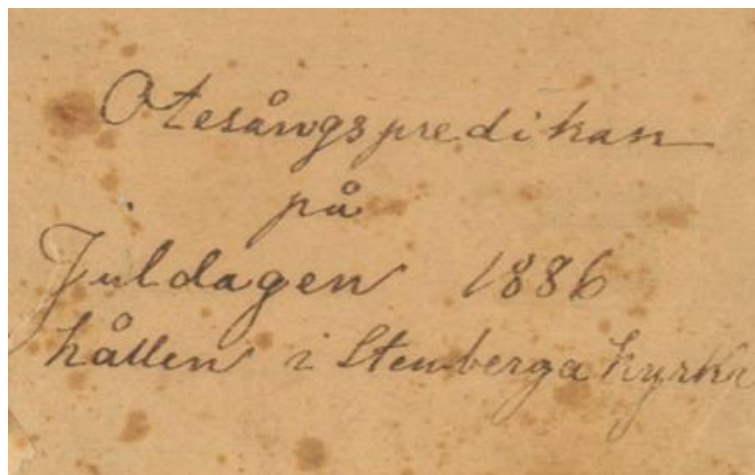 Otesångspredikan
på
Juldagen 1886
hållen i Stenberga kyrka